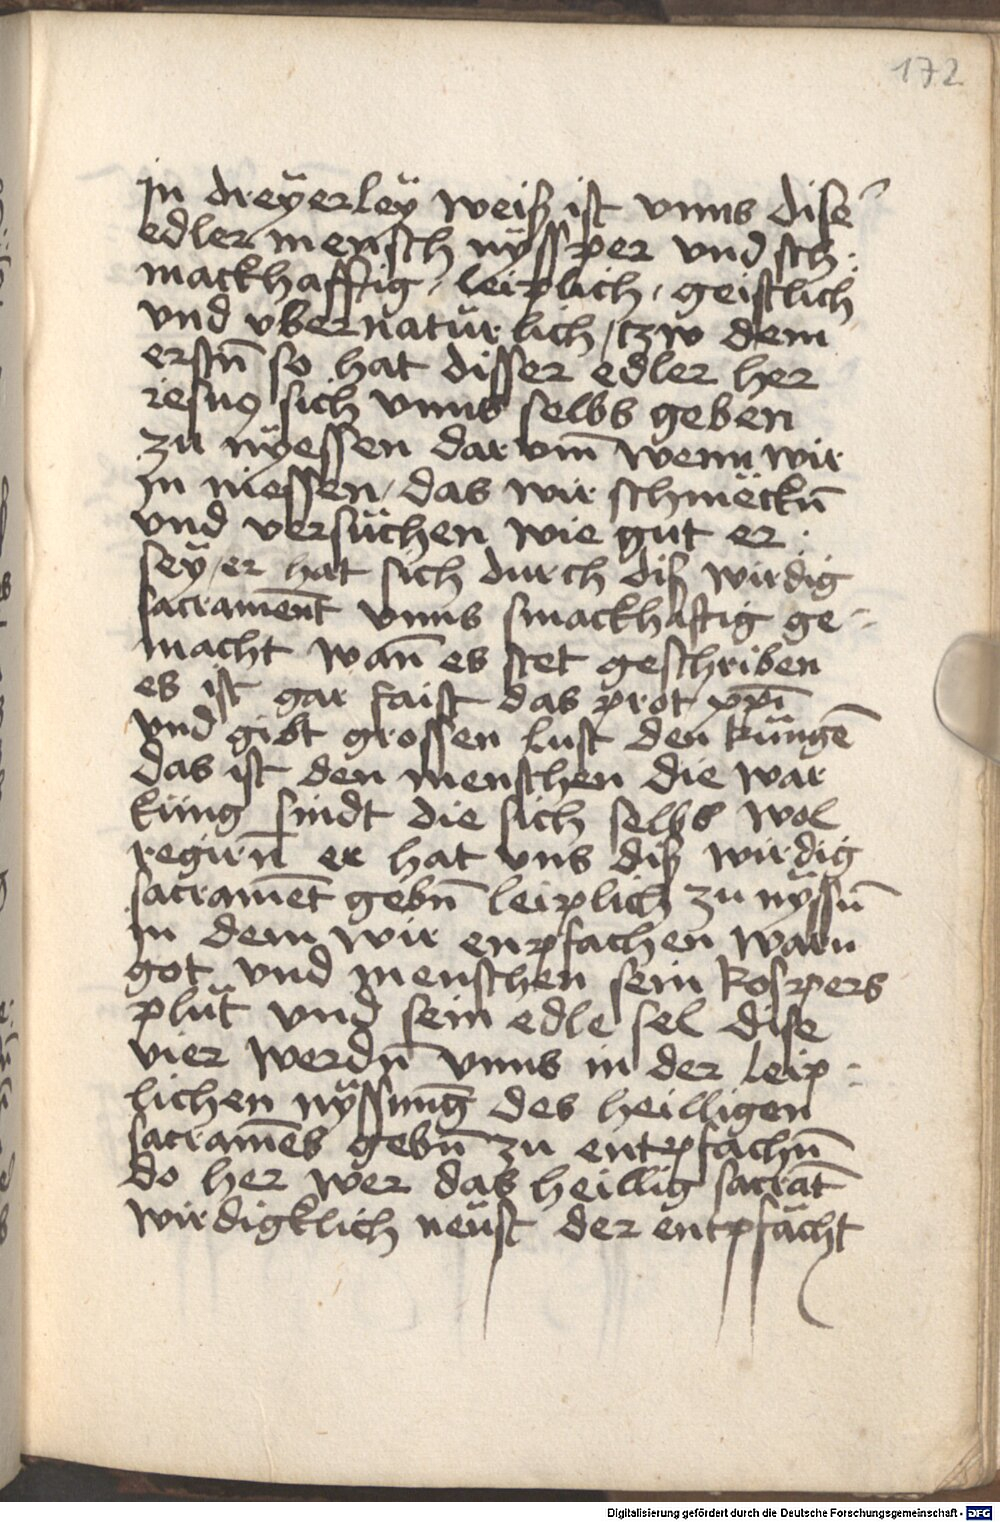 172
In dreÿerleÿ weiß ist vnns dise
edler mensch nÿssper vnd sch:
mackhafftig, leiplich, geistlich
vnd vbernatürlich / tzw dem
erstn̄ so hat disser edler her
iesus sich vnns selbs geben
zu nÿessen dar vm̄ wenn wir
in niessen / das wir schmëckn̄
vnd versüchen wie gut er
seÿ / er hat sich durch diß wirdig
sacramēnt vnns smackhaftig ge-
macht wan̄ es stet geschriben
es ist gar faist das prot xp̄i
vnd gibt grossen lust den küngē
das ist den menschen die war
küng sindt die sich selbs wol
regirn̄ er hat vns diß wirdig
sacramēt gebn̄ leiplich zu nÿssn̄
in dem wir enpfachen warn
got vnd menschen sein kospers
plüt vnd sein edle sel dise
vier werdn̄ vnns in der leip:
lichen nÿssunḡ des heilligen
sacramēs gebn̄ zu entpfachn̄
do her wer das heillig sacrāt
wirdigklich neüst der entpfächt
Digitalisierung gefördert durch die Deutsche Forschungsgemeinschaft - DFG